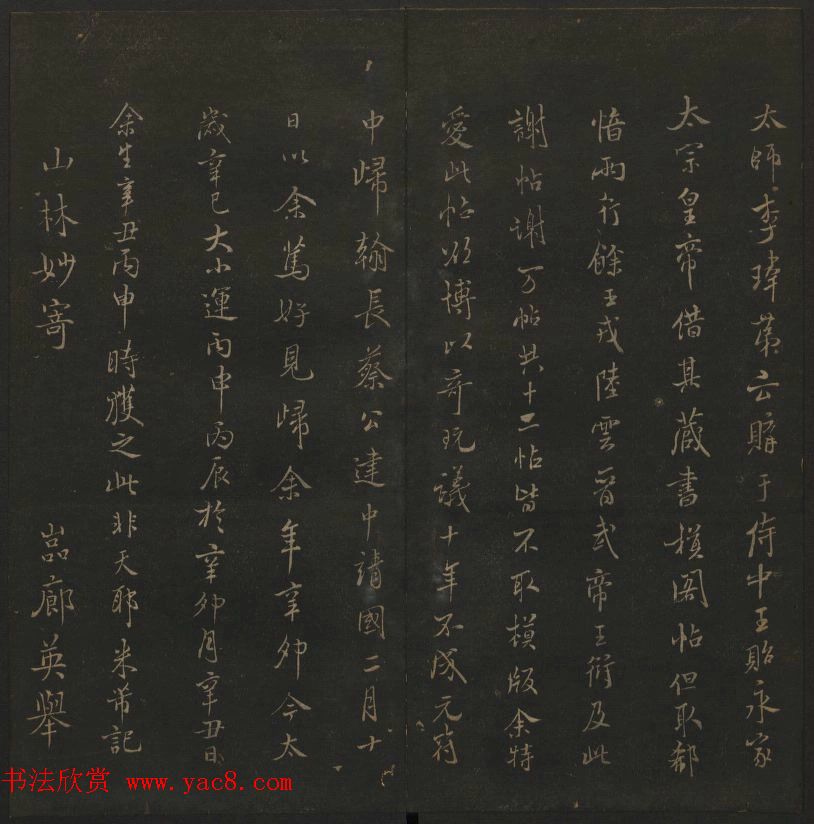 太師李瑋第云購于侍中王貽永家
太宗皇帝借其藏書模閣帖但取郗
愔兩行餘王戎陸雲晉武帝王衍及此
謝帖謝万帖共十二帖皆不取模版余特
愛此帖欲博以奇玩議十年不成元符
中歸翰長蔡公建中靖國二月十
日以余篤好見歸余年辛卯今太
歲辛巳大小運丙申丙辰於辛卯月辛丑日
余生辛丑丙申時獲之此非天耶米芾記
山林妙寄
巖廊英舉
书法欣赏 www.yac8.com